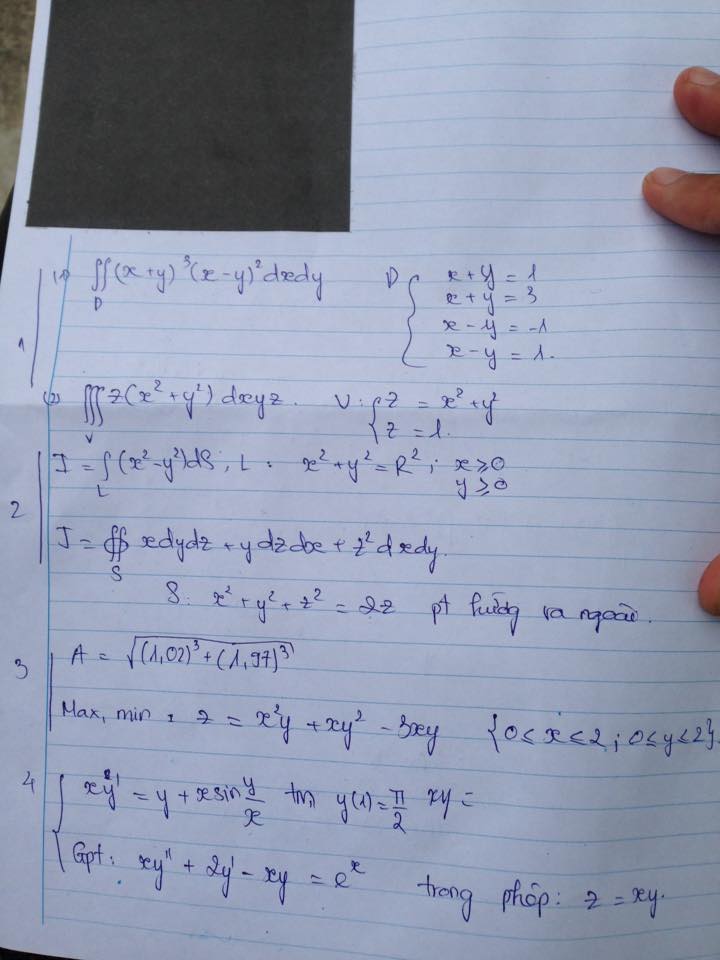 1 (1) ∬_D (x+y)^3 (x-y)^2 dxdy D { x+y = 1
x+y = 3
x-y = -1
x-y = 1.
(2) ∭_V z(x^2+y^2) dxyz. V: { z = x^2+y^2
z = 1.
2 I = ∫_L (x^2-y^2)dS; L: x^2+y^2 = R^2; x ≥ 0
y ≥ 0
J = ∯_S xdydz + ydzdx + z^2dxdy.
S: x^2+y^2+z^2 = 2z pt hướng ra ngoài.
3 A = √((1,02)^3+(1,97)^3)
Max, min: z = x^2y + xy^2 - 3xy {0≤x≤2; 0≤y≤2}.
4 xy' = y + xsin y/x tm y(1) = π/2 xy =
Gpt: xy'' + 2y' - xy = e^x trong phép: z = xy.